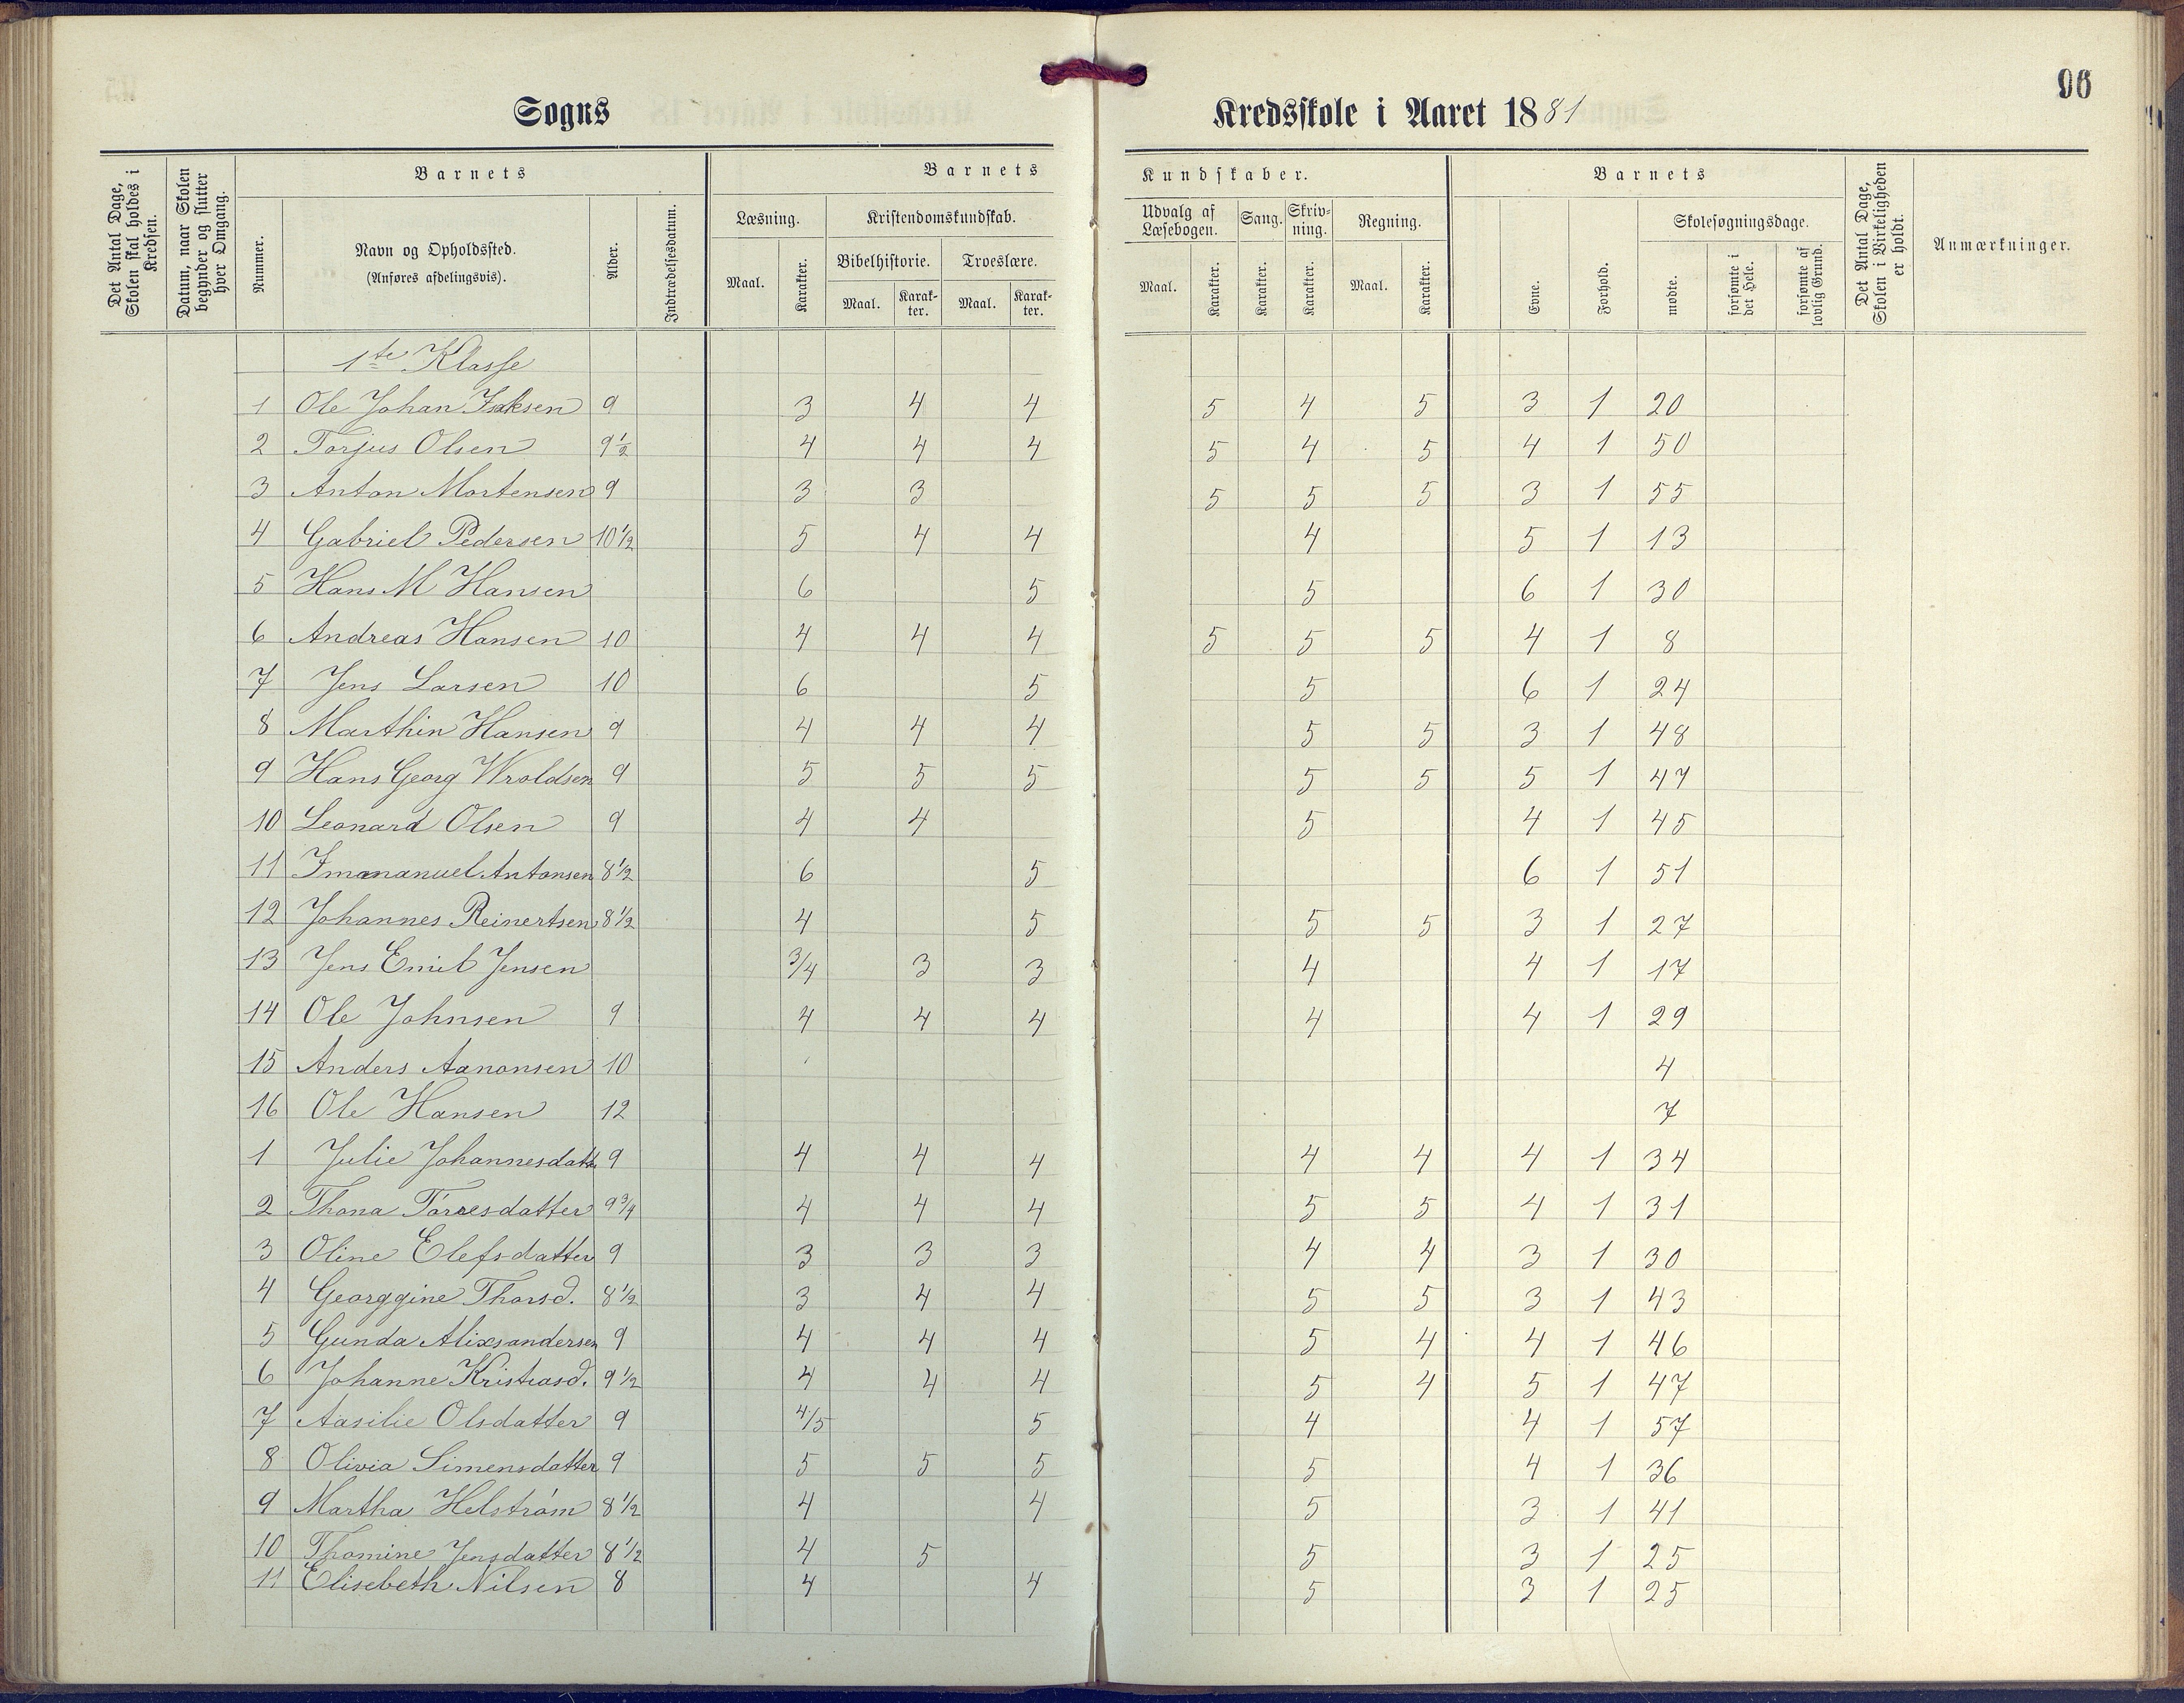 96
Sogns Kredsskole i Aaret 1881
Det Antal Dage, Skolen skal holdes i Kredsen.
Datum, naar Skolen begynder og slutter hver Omgang.
Barnets
Nummer.
Navn og Opholdssted.
(Anføres afdelingsvis).
Alder.
Indtrædelsesdatum.
Barnets Kundskaber.
Læsning.
Maal.
Karakter.
Kristendomskundskab.
Bibelhistorie.
Maal.
Karakter.
Troeslære.
Maal.
Karakter.
Udvalg af Læsebogen.
Maal.
Karakter.
Sang.
Karakter.
Skrivning.
Karakter.
Regning.
Maal.
Karakter.
Barnets
Evne.
Forhold.
Skolesøgningsdage.
mødte.
forsømte i det Hele.
forsømte af lovlig Grund.
Det Antal Dage, Skolen i Virkeligheden er holdt.
Anmærkninger.
1te Klasse
1 Ole Johan Isaksen 9 3 4 4 5 4 5 3 1 20
2 Torjus Olsen 9½ 4 4 4 5 4 5 4 1 50
3 Anton Mortensen 9 3 3 5 5 5 3 1 55
4 Gabriel Pedersen 10½ 5 4 4 4 5 1 13
5 Hans M Hansen 6 5 5 6 1 30
6 Andreas Hansen 10 4 4 4 5 5 5 4 1 8
7 Jens Larsen 10 6 5 5 6 1 24
8 Marthin Hansen 9 4 4 4 5 5 3 1 48
9 Hans Georg Wroldsen 9 5 5 5 5 5 5 1 47
10 Leonard Olsen 9 4 4 5 4 1 45
11 Imananuel Antonsen 8½ 6 5 6 1 51
12 Johannes Reinertsen 8½ 4 5 5 5 3 1 27
13 Jens Emil Jensen 3/4 3 3 4 4 1 17
14 Ole Johnsen 9 4 4 4 4 4 1 29
15 Anders Aanonsen 10 4
16 Ole Hansen 12 7
1 Julie Johannesdatte 9 4 4 4 4 4 4 1 34
2 Thona Tórresdatter 9¾ 4 4 4 5 5 4 1 31
3 Oline Elefsdatter 9 3 3 3 4 4 3 1 30
4 Georggine Thorsd. 8½ 3 4 4 5 5 3 1 43
5 Gunda Alixsandersen 9 4 4 4 5 4 4 1 46
6 Johanne Kristiasd. 9½ 4 4 4 5 4 5 1 47
7 Aasilie Olsdatter 9 4/5 5 4 4 1 57
8 Olivia Simensdatter 9 5 5 5 5 4 1 36
9 Martha Helstróm 8½ 4 4 5 3 1 41
10 Thomine Jensdatter 8½ 4 5 5 3 1 25
11 Elisebeth Nilsen 8 4 4 5 3 1 25